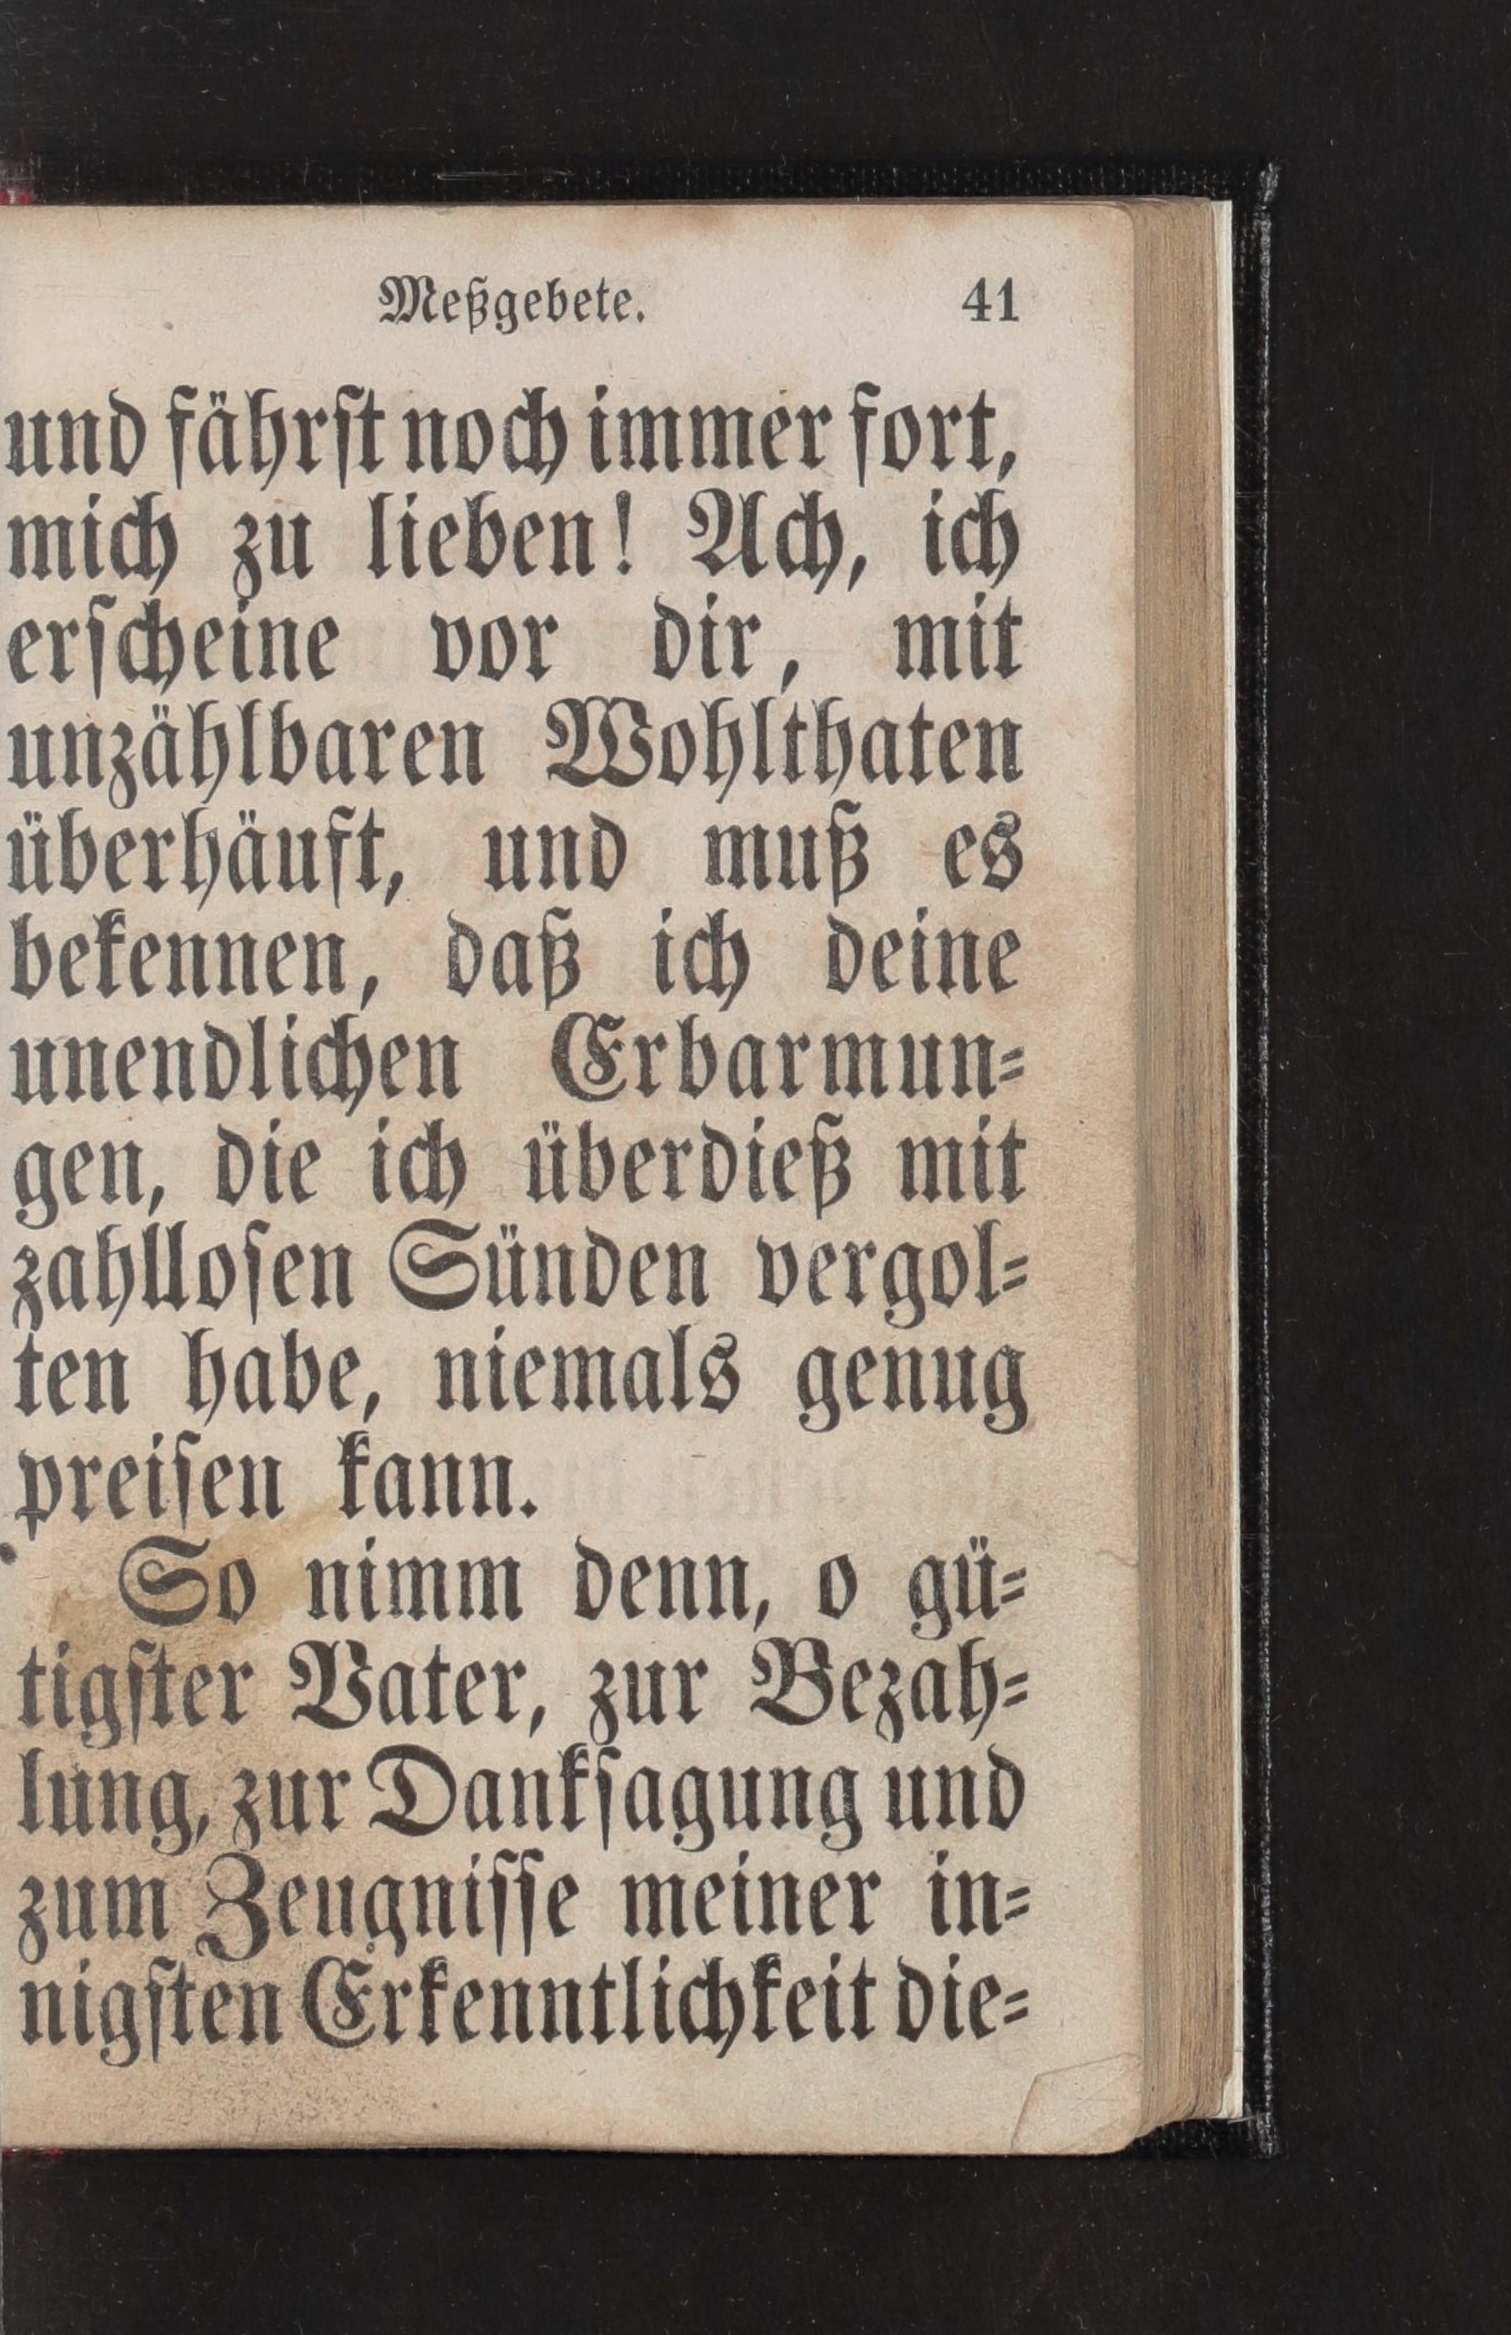 Meßgebete. 41
und fährſt noch immer fort,
mich zu lieben! Ach, ich
erſcheine vor dir, mit
unzählbaren Wohlthaten
überhäuft, und muß es
bekennen, daß ich deine
unendlichen Erbarmun⸗
gen, die ich überdieß mit
zahlloſen Sünden vergol⸗
ten habe, niemals genug
preiſen kann.
So nimm denn, o gü⸗
tigſter Vater, zur Bezah⸗
lung, zur Dankſagung und
zum Zeugniſſe meiner in⸗
nigſten Erkenntlichkeit die⸗